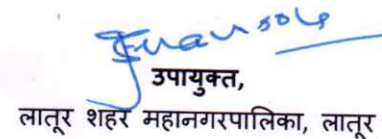 उपायुक्त,
लातूर शहर महानगरपालिका, लातूर